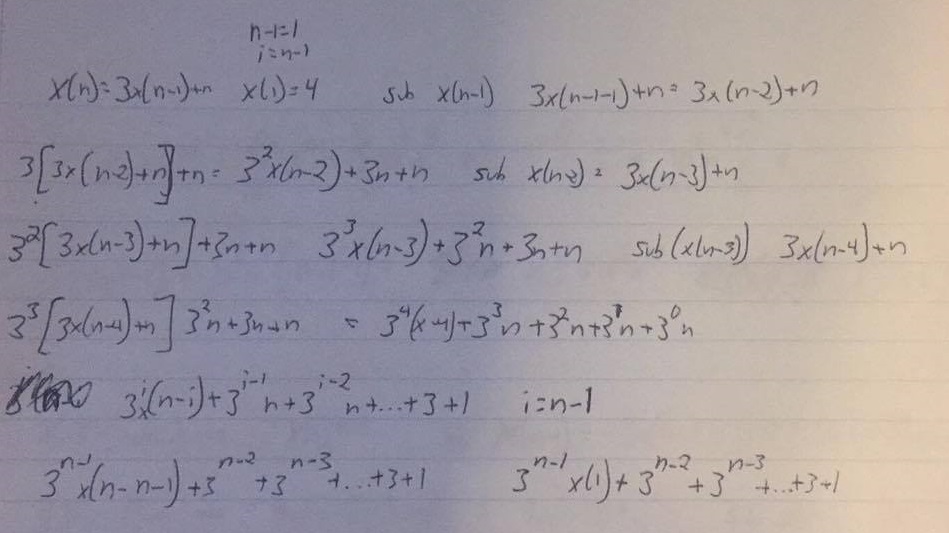 n-1=1
i=n-1
x(n)=3x(n-1)+n x(1)=4 sub x(n-1) 3x(n-1-1)+n= 3x(n-2)+n
3[3x(n-2)+n]+n= 3²x(n-2)+3n+n sub x(n-2)= 3x(n-3)+n
3²[3x(n-3)+n]+3n+n 3³x(n-3)+3²n+3n+n sub(x(n-3)) 3x(n-4)+n
3³[3x(n-4)+n] 3²n+3n+n = 3⁴(x-4)+3³n+3²n+3¹n+3⁰n
3ⁱx(n-i)+3ⁱ⁻¹n+3ⁱ⁻²n+...+3+1 i=n-1
3ⁿ⁻¹x(n-n-1)+3ⁿ⁻²+3ⁿ⁻³+...+3+1 3ⁿ⁻¹x(1)+3ⁿ⁻²+3ⁿ⁻³+...+3+1